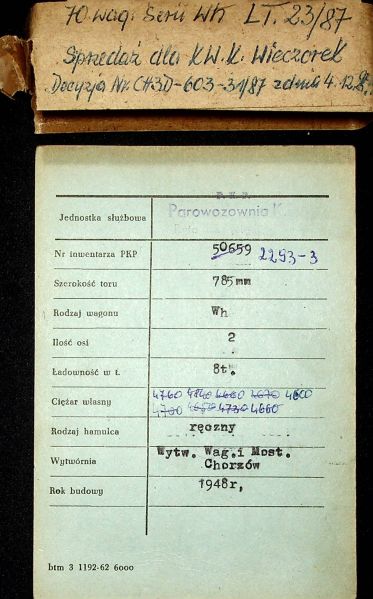 70 wag. Serii Wh LT. 23/87
Sprzedaż dla KWK. Wieczorek
Decyzja Nr. CH3D-603-31/87 z dnia 4.12.
P.K.P.
Jednostka służbowa Parowozownia K.
Nr inwentarza PKP 50659 2293-3
Szerokość toru 785mm
Rodzaj wagonu Wh
Ilość osi 2
Ładowność w t. 8t.
Ciężar własny 4760 4840 4660 4670 4600
4700 4650 4730 4660
Rodzaj hamulca ręczny
Wytwórnia Wytw. Wag.i Most.
Chorzów
Rok budowy 1948r,
btm 3 1192-62 6000